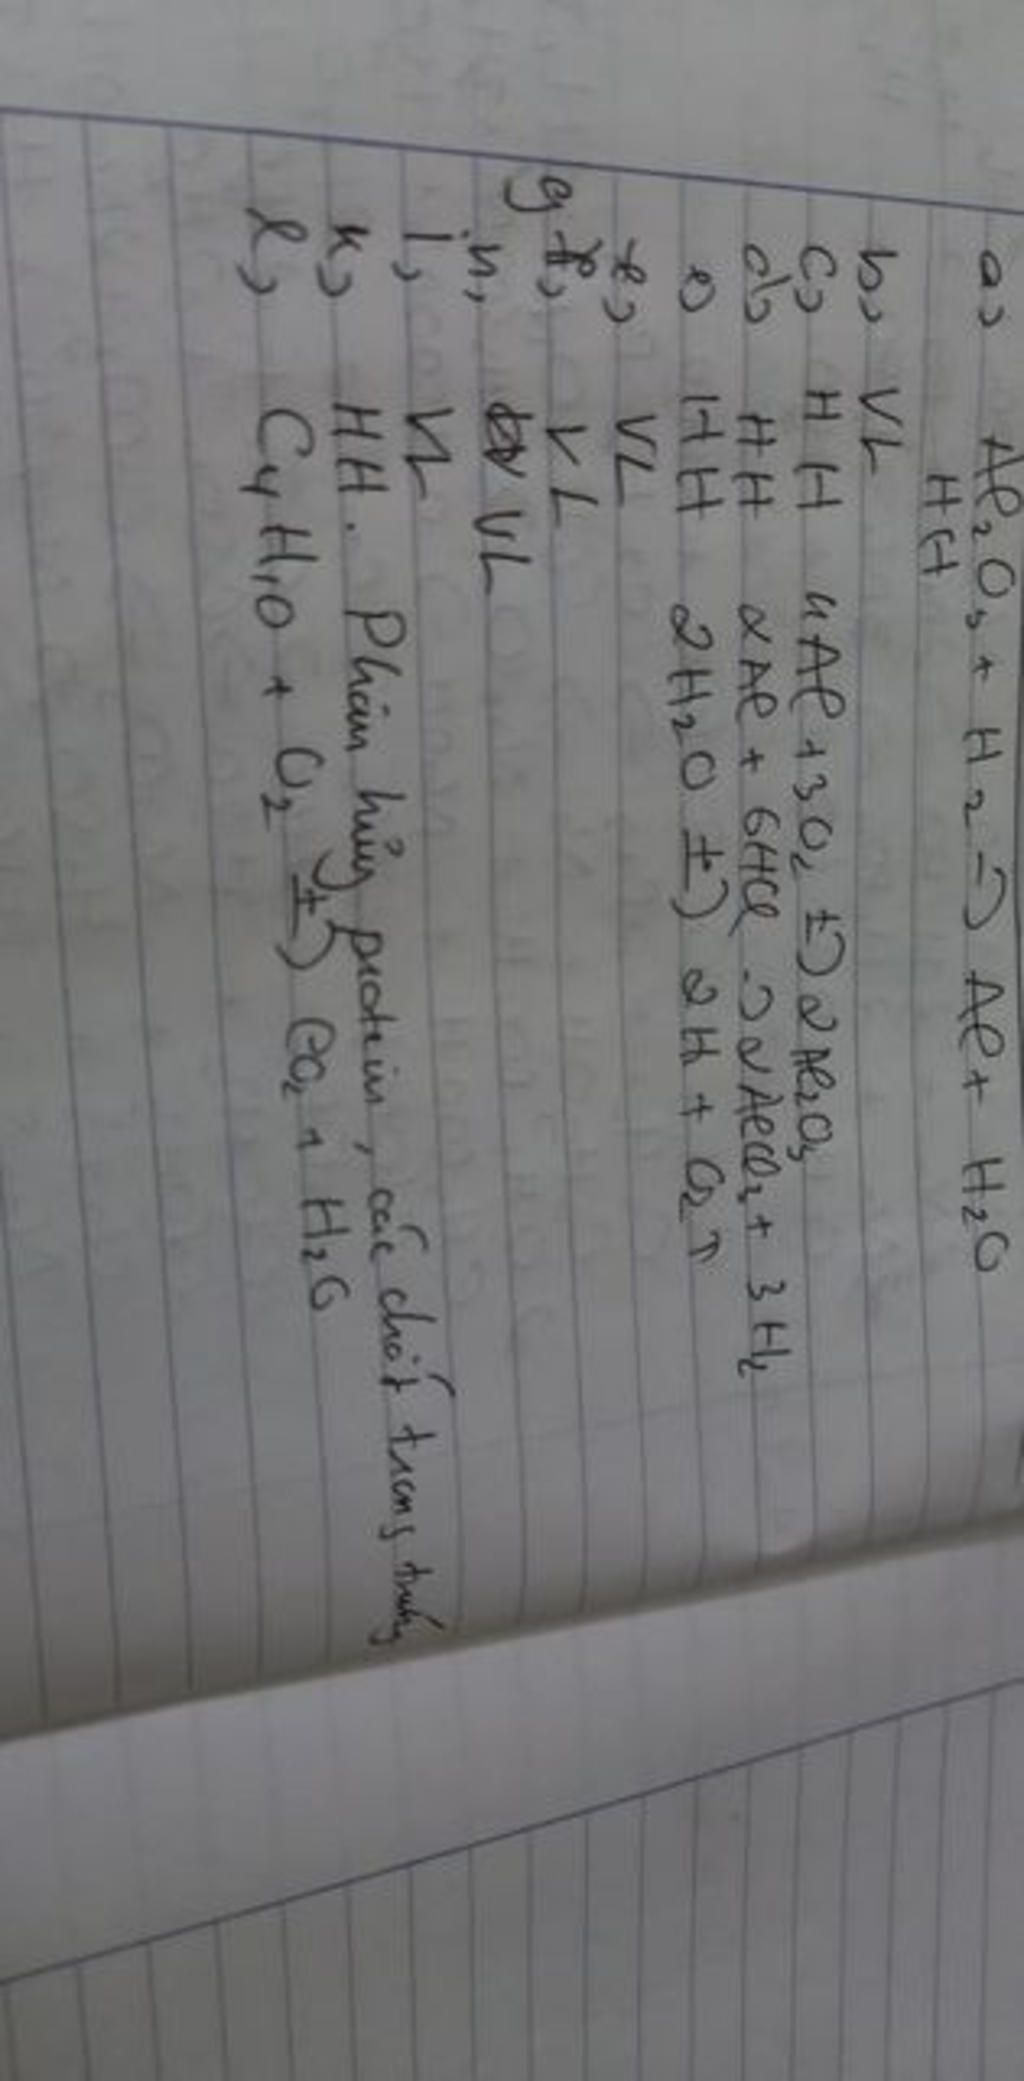 a) Al₂O₃ + H₂ → Al + H₂O
HH
b, VL
c, HH 4Al + 3O₂ t→ 2Al₂O₃
d) HH 2Al + 6HCl → 2AlCl₃ + 3H₂
e) HH 2H₂O t→ 2H + O₂↑
e, VL
g, VL
h, VL
i, VL
k, HH. Phân hủy protein, các chất trong trứng
l, C₄H₁₀ + O₂ t→ CO₂ + H₂O